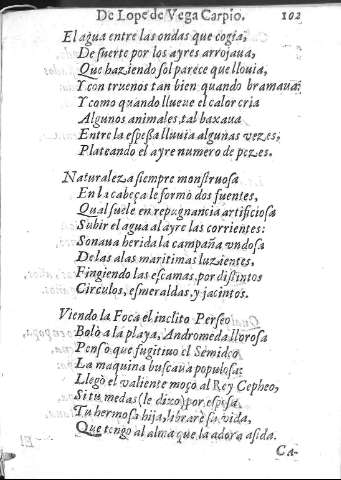 De Lope de Vega Carpio. 102
El agua entre las ondas que cogia,
De suerte por los ayres arrojaua,
Que haziendo sol parece que llouia,
Y con truenos tan bien quando bramaua:
Y como quando llueue el calor cria
Algunos animales, tal baxaua
Entre la espessa lluuia algunas vezes,
Plateando el ayre numero de pezes.
Naturaleza siempre monstruosa
En la cabeça le formò dos fuentes,
Qual suele en repugnancia artificiosa
Subir el agua al ayre las corrientes:
Sonaua herida la campaña vndosa
De las alas maritimas luzientes,
Fingiendo las escamas, por distintos
Circulos, esmeraldas, y jacintos.
Viendo la Foca el inclito Perseo
Bolò a la playa, Andromeda llorosa
Penso que fugitiuo el Semideo
La maquina buscaua populosa:
Llegò el valiente moço al Rey Cepheo,
Si tu me das (le dixo) por esposa
Tu hermosa hija, librarè sa vida,
Que tengo al alma que la adora asida.
Ca-